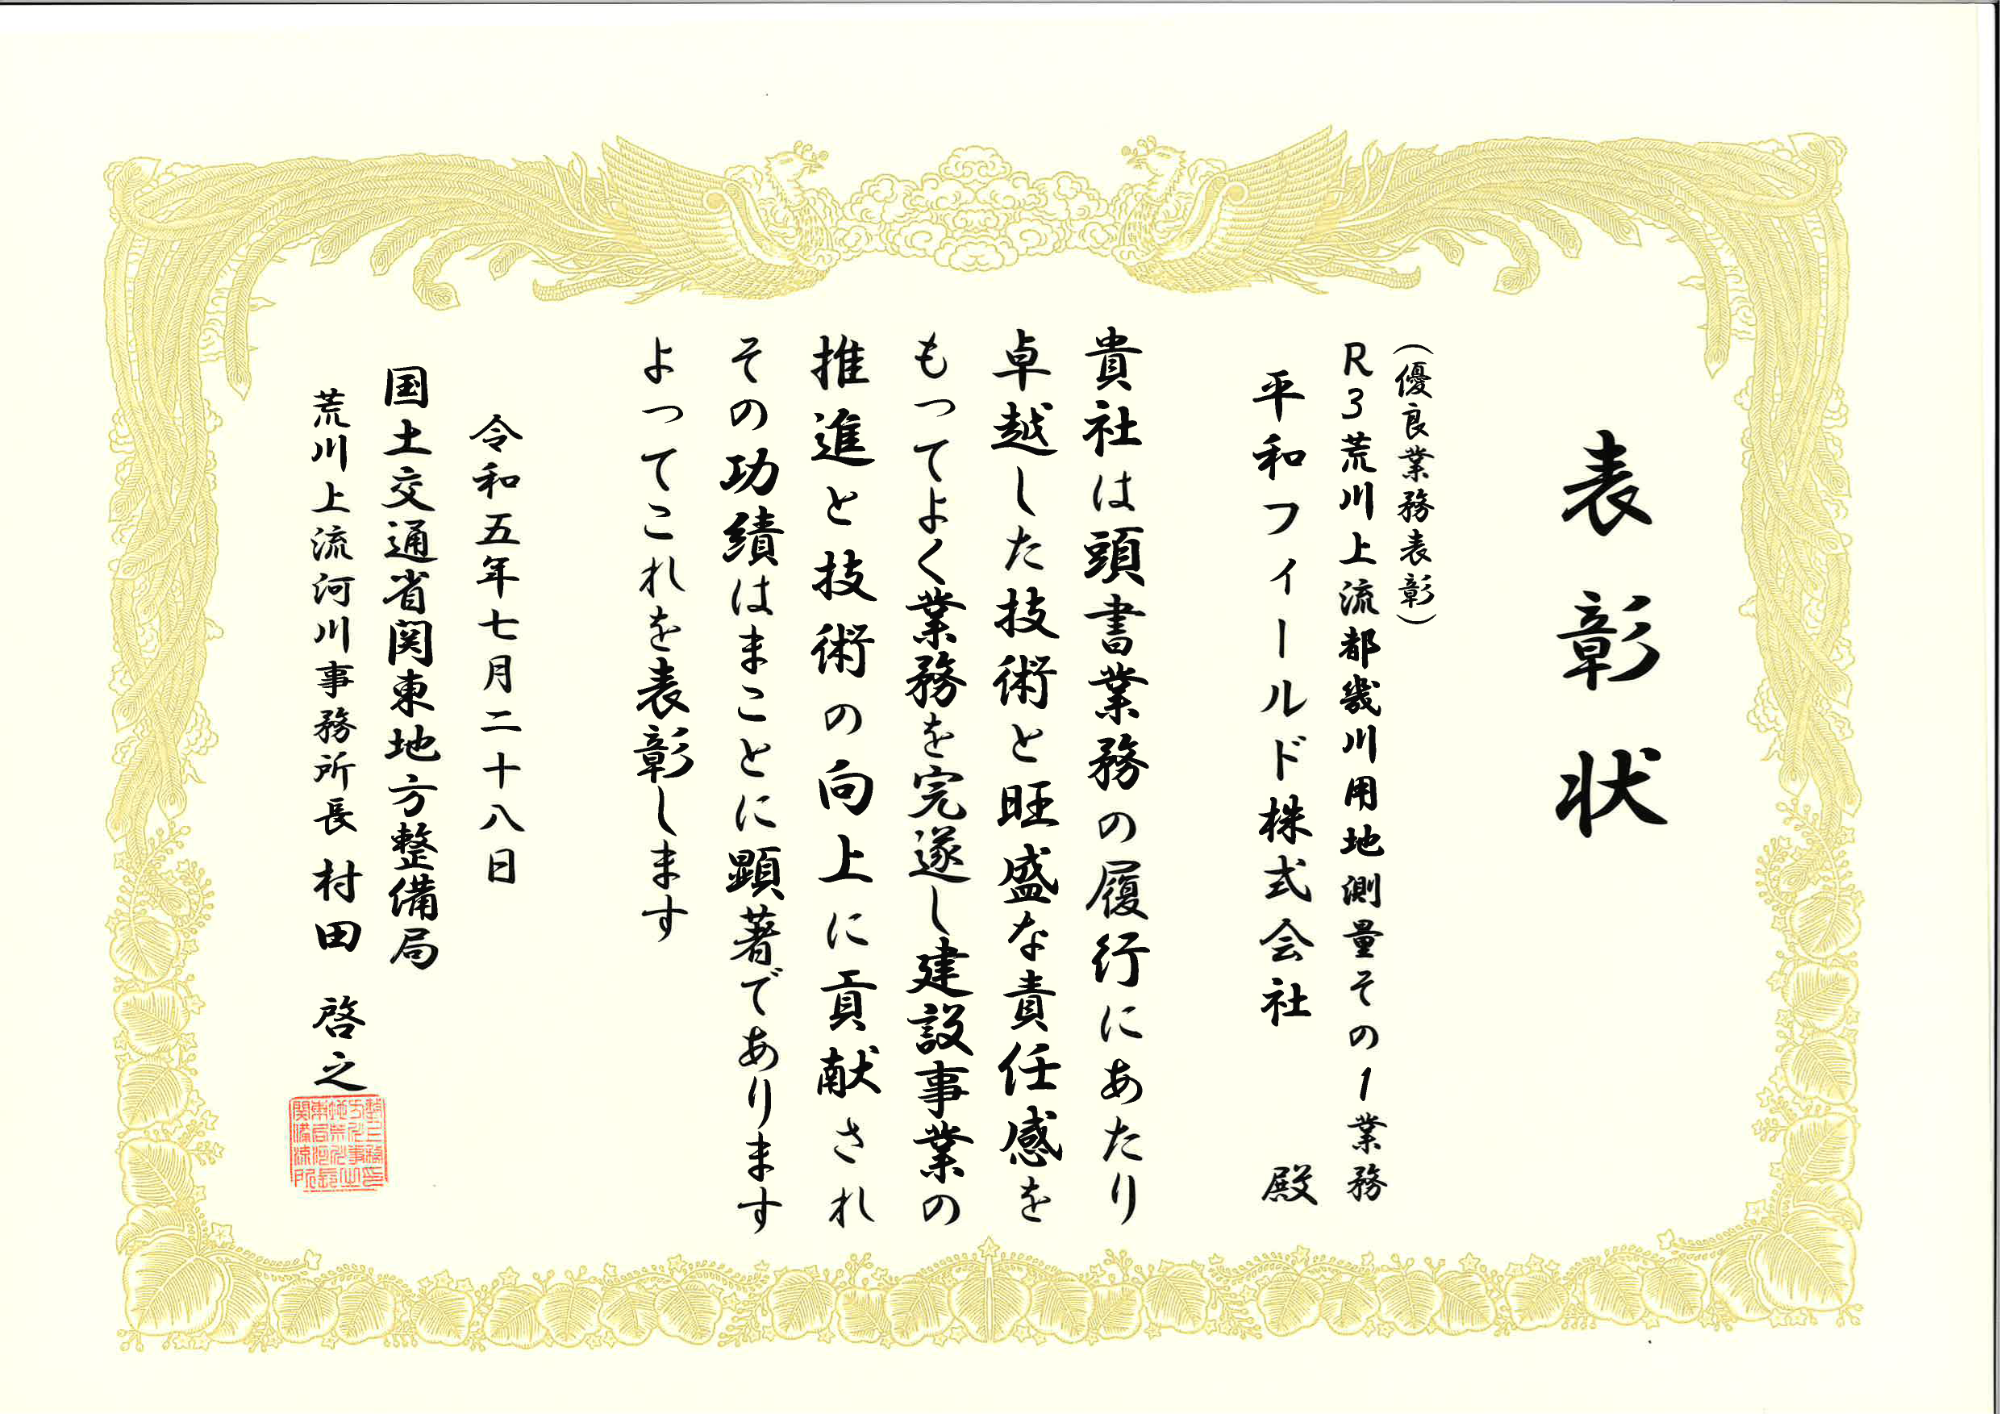 表彰状
(優良業務表彰)
R3荒川上流都幾川用地測量その1業務
平和フィールド株式会社 殿
貴社は頭書業務の履行にあたり
卓越した技術と旺盛な責任感を
もってよく業務を完遂し建設事業の
推進と技術の向上に貢献され
その功績はまことに顕著であります
よってこれを表彰します
令和五年七月二十八日
国土交通省関東地方整備局
荒川上流河川事務所長 村田 啓之